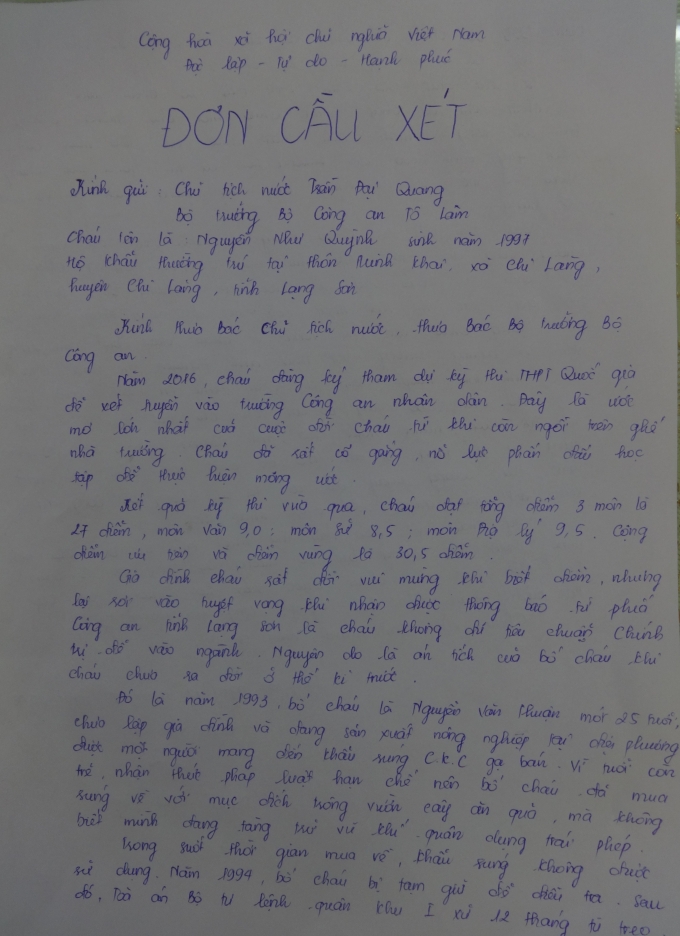 Cộng hoà xã hội chủ nghĩa Việt Nam
Độc lập - Tự do - Hạnh phúc
ĐƠN CẦU XÉT
Kính gửi : Chủ tịch nước Trần Đại Quang
Bộ trưởng Bộ Công an Tô Lâm
Cháu tên là : Nguyễn Như Quỳnh sinh năm 1997
Hộ khẩu thường trú tại thôn Minh Khai, xã Chi Lăng,
huyện Chi Lăng, tỉnh Lạng Sơn
Kính thưa Bác Chủ tịch nước, thưa Bác Bộ trưởng Bộ
Công an.
Năm 2016, cháu đăng ký tham dự kỳ thi THPT Quốc gia
để xét tuyển vào trường Công an nhân dân. Đây là ước
mơ lớn nhất của cuộc đời cháu từ khi còn ngồi trên ghế
nhà trường. Cháu đã rất cố gắng, nỗ lực phấn đấu học
tập để thực hiện mong ước.
Kết quả kỳ thi vừa qua, cháu đạt tổng điểm 3 môn là
27 điểm, môn Văn 9,0 ; môn Sử 8,5 ; môn Địa lý 9,5. Cộng
điểm ưu tiên và điểm vùng là 30,5 điểm.
Gia đình cháu rất đỗi vui mừng khi biết điểm, nhưng
lại rơi vào tuyệt vọng khi nhận được thông báo từ phía
Công an tỉnh Lạng Sơn là cháu không đủ tiêu chuẩn Chính
trị để vào ngành. Nguyên do là án tích của bố cháu khi
cháu chưa ra đời ở thế kỉ trước.
Đó là năm 1993, bố cháu là Nguyễn Văn Thuận mới 25 tuổi,
chưa lập gia đình và đang sản xuất nông nghiệp tại địa phương
được một người mang đến khẩu súng C.K.C gạ bán. Vì tuổi còn
trẻ, nhận thức pháp luật hạn chế nên bố cháu đã mua
súng về với mục đích trông vườn cây ăn quả, mà không
biết mình đang tàng trữ vũ khí quân dụng trái phép.
Trong suốt thời gian mua về, khẩu súng không được
sử dụng. Năm 1994, bố cháu bị tạm giữ để điều tra. Sau
đó, Toà án Bộ tư lệnh quân khu I xử 12 tháng tù treo.